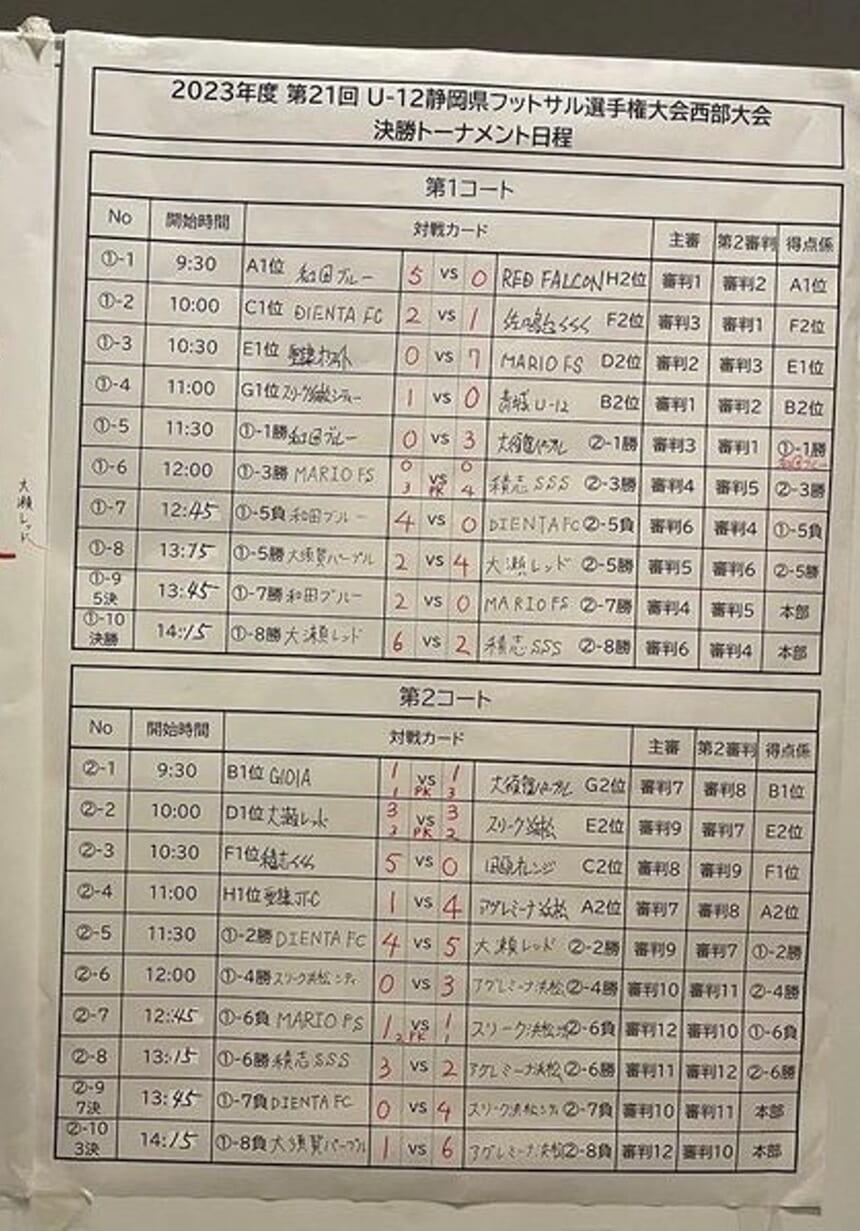 2023年度 第21回 U-12静岡県フットサル選手権大会西部大会
決勝トーナメント日程
第1コート
No 開始時間 対戦カード 主審 第2審判 得点係
①-1 9:30 A1位 和田ブルー 5 vs 0 RED FALCON H2位 審判1 審判2 A1位
①-2 10:00 C1位 DIENTA FC 2 vs 1 佐鳴台SSS F2位 審判3 審判1 F2位
①-3 10:30 E1位 聖隷 0 vs 7 MARIO FS D2位 審判2 審判3 E1位
①-4 11:00 G1位 スリーク浜松シティー 1 vs 0 U-12 B2位 審判1 審判2 B2位
①-5 11:30 ①-1勝 和田ブルー 0 vs 3 大須賀パープル ②-1勝 審判3 審判1 ①-1勝
和田ブルー
①-6 12:00 ①-3勝 MARIO FS 0 vs 0 積志SSS ②-3勝 審判4 審判5 ②-3勝
3 PK 4
①-7 12:45 ①-5負 和田ブルー 4 vs 0 DIENTA FC ②-5負 審判6 審判4 ①-5負
①-8 13:15 ①-5勝 大須賀パープル 2 vs 4 大瀬レッド ②-5勝 審判5 審判6 ②-5勝
①-9 13:45 ①-7勝 和田ブルー 2 vs 0 MARIO FS ②-7勝 審判4 審判5 本部
5決
①-10 14:15 ①-8勝 大瀬レッド 6 vs 2 積志SSS ②-8勝 審判6 審判4 本部
決勝
大瀬レッド
第2コート
No 開始時間 対戦カード 主審 第2審判 得点係
②-1 9:30 B1位 GIOIA 1 vs 1 大須賀パープル G2位 審判7 審判8 B1位
1 PK 3
②-2 10:00 D1位 大瀬レッド 3 vs 3 スリーク浜松 E2位 審判9 審判7 E2位
3 PK 2
②-3 10:30 F1位 積志SSS 5 vs 0 オレンジ C2位 審判8 審判9 F1位
②-4 11:00 H1位 聖隷JFC 1 vs 4 アグレミーナ浜松 A2位 審判7 審判8 A2位
②-5 11:30 ①-2勝 DIENTA FC 4 vs 5 大瀬レッド ②-2勝 審判9 審判7 ①-2勝
②-6 12:00 ①-4勝 スリーク浜松シティ 0 vs 3 アグレミーナ浜松 ②-4勝 審判10 審判11 ②-4勝
②-7 12:45 ①-6負 MARIO FS 1 vs 1 スリーク浜松 ②-6負 審判12 審判10 ①-6負
2 PK 1
②-8 13:15 ①-6勝 積志SSS 3 vs 2 アグレミーナ浜松 ②-6勝 審判11 審判12 ②-6勝
②-9 13:45 ①-7負 DIENTA FC 0 vs 4 スリーク浜松シティ ②-7負 審判10 審判11 本部
7決
②-10 14:15 ①-8負 大須賀パープル 1 vs 6 アグレミーナ浜松 ②-8負 審判12 審判10 本部
3決